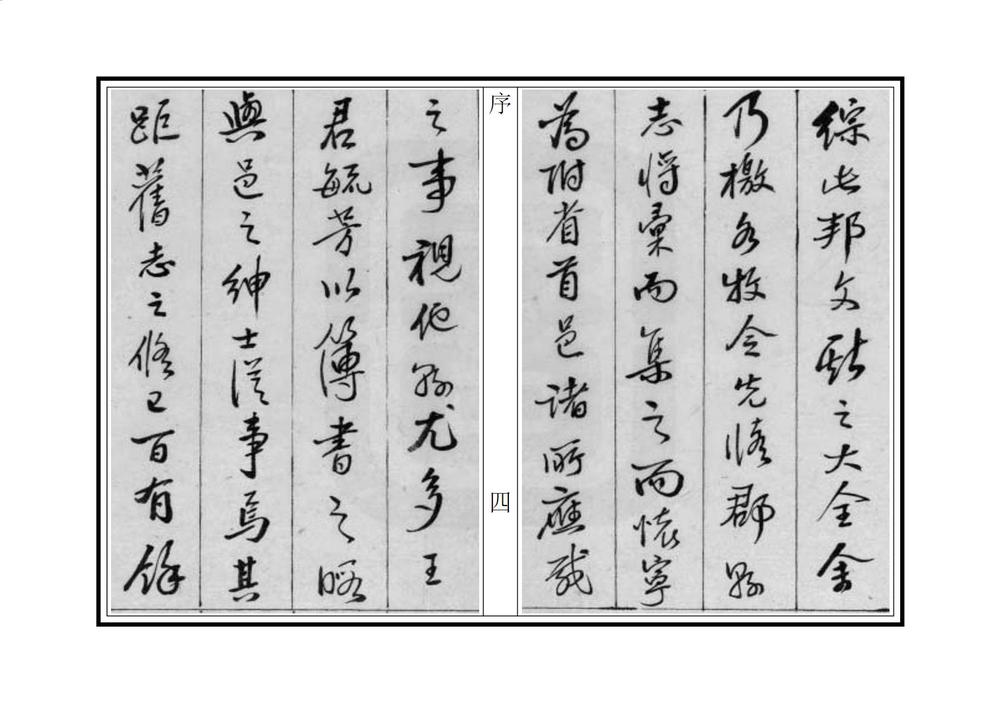 綜此邦文獻之大全余
乃檄各牧令先脩郡縣
志將彙而集之而懷寧
為附省首邑諸所應載
序
四
之事視他縣尤多王
君毓芳以簿書之暇
與邑之紳士從事焉其
距舊志之脩已百有餘